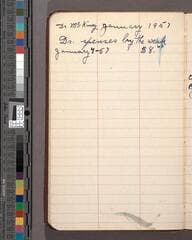 Dr McKay January 1957
Dr. spenses by the week
January 7-57 $8.